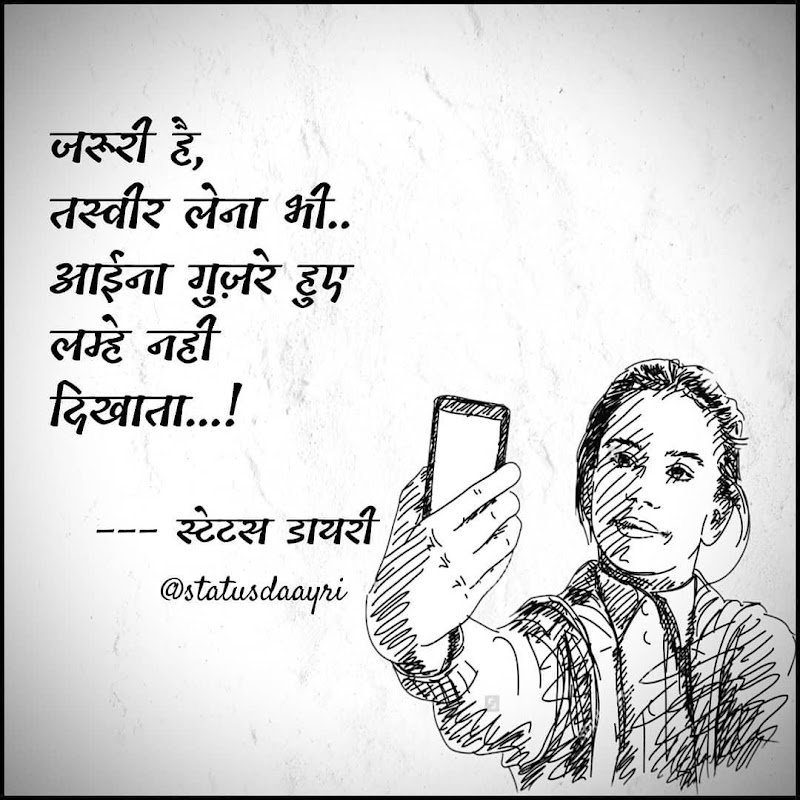 जरूरी है,
तस्वीर लेना भी..
आईना गुज़रे हुए
लम्हे नही
दिखाता...!
--- स्टेटस डायरी
@statusdaayri